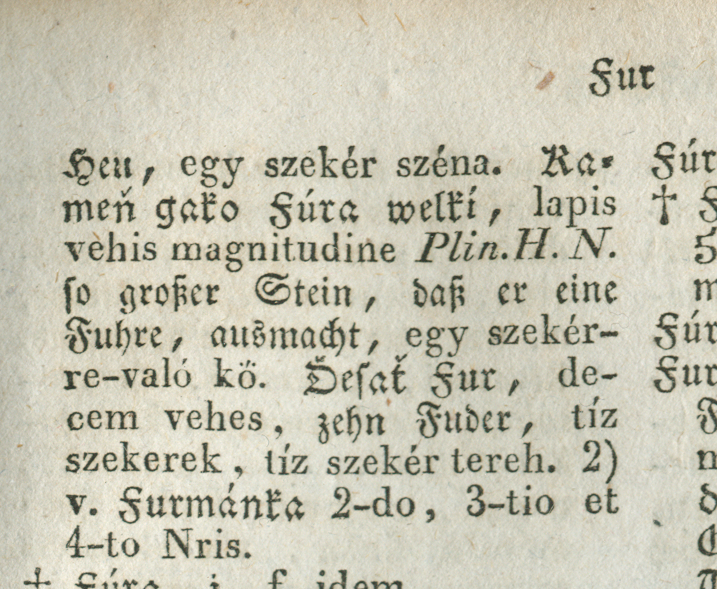 Fur
Heu, egy szekér széna. Ka-
meň gako Fúra welkí, lapis
vehis magnitudine Plin. H. N.
so großer Stein, daß er eine
Fuhre, ausmacht, egy szekér-
re-való kö. Ďesať Fur, de-
cem vehes, zehn Fuder, tíz
szekerek, tíz szekér tereh. 2)
v. Furmánka 2-do, 3-tio et
4-to Nris.
† Fúra, i, f. idem
Fúr
†
5
m
Fúr
Fur